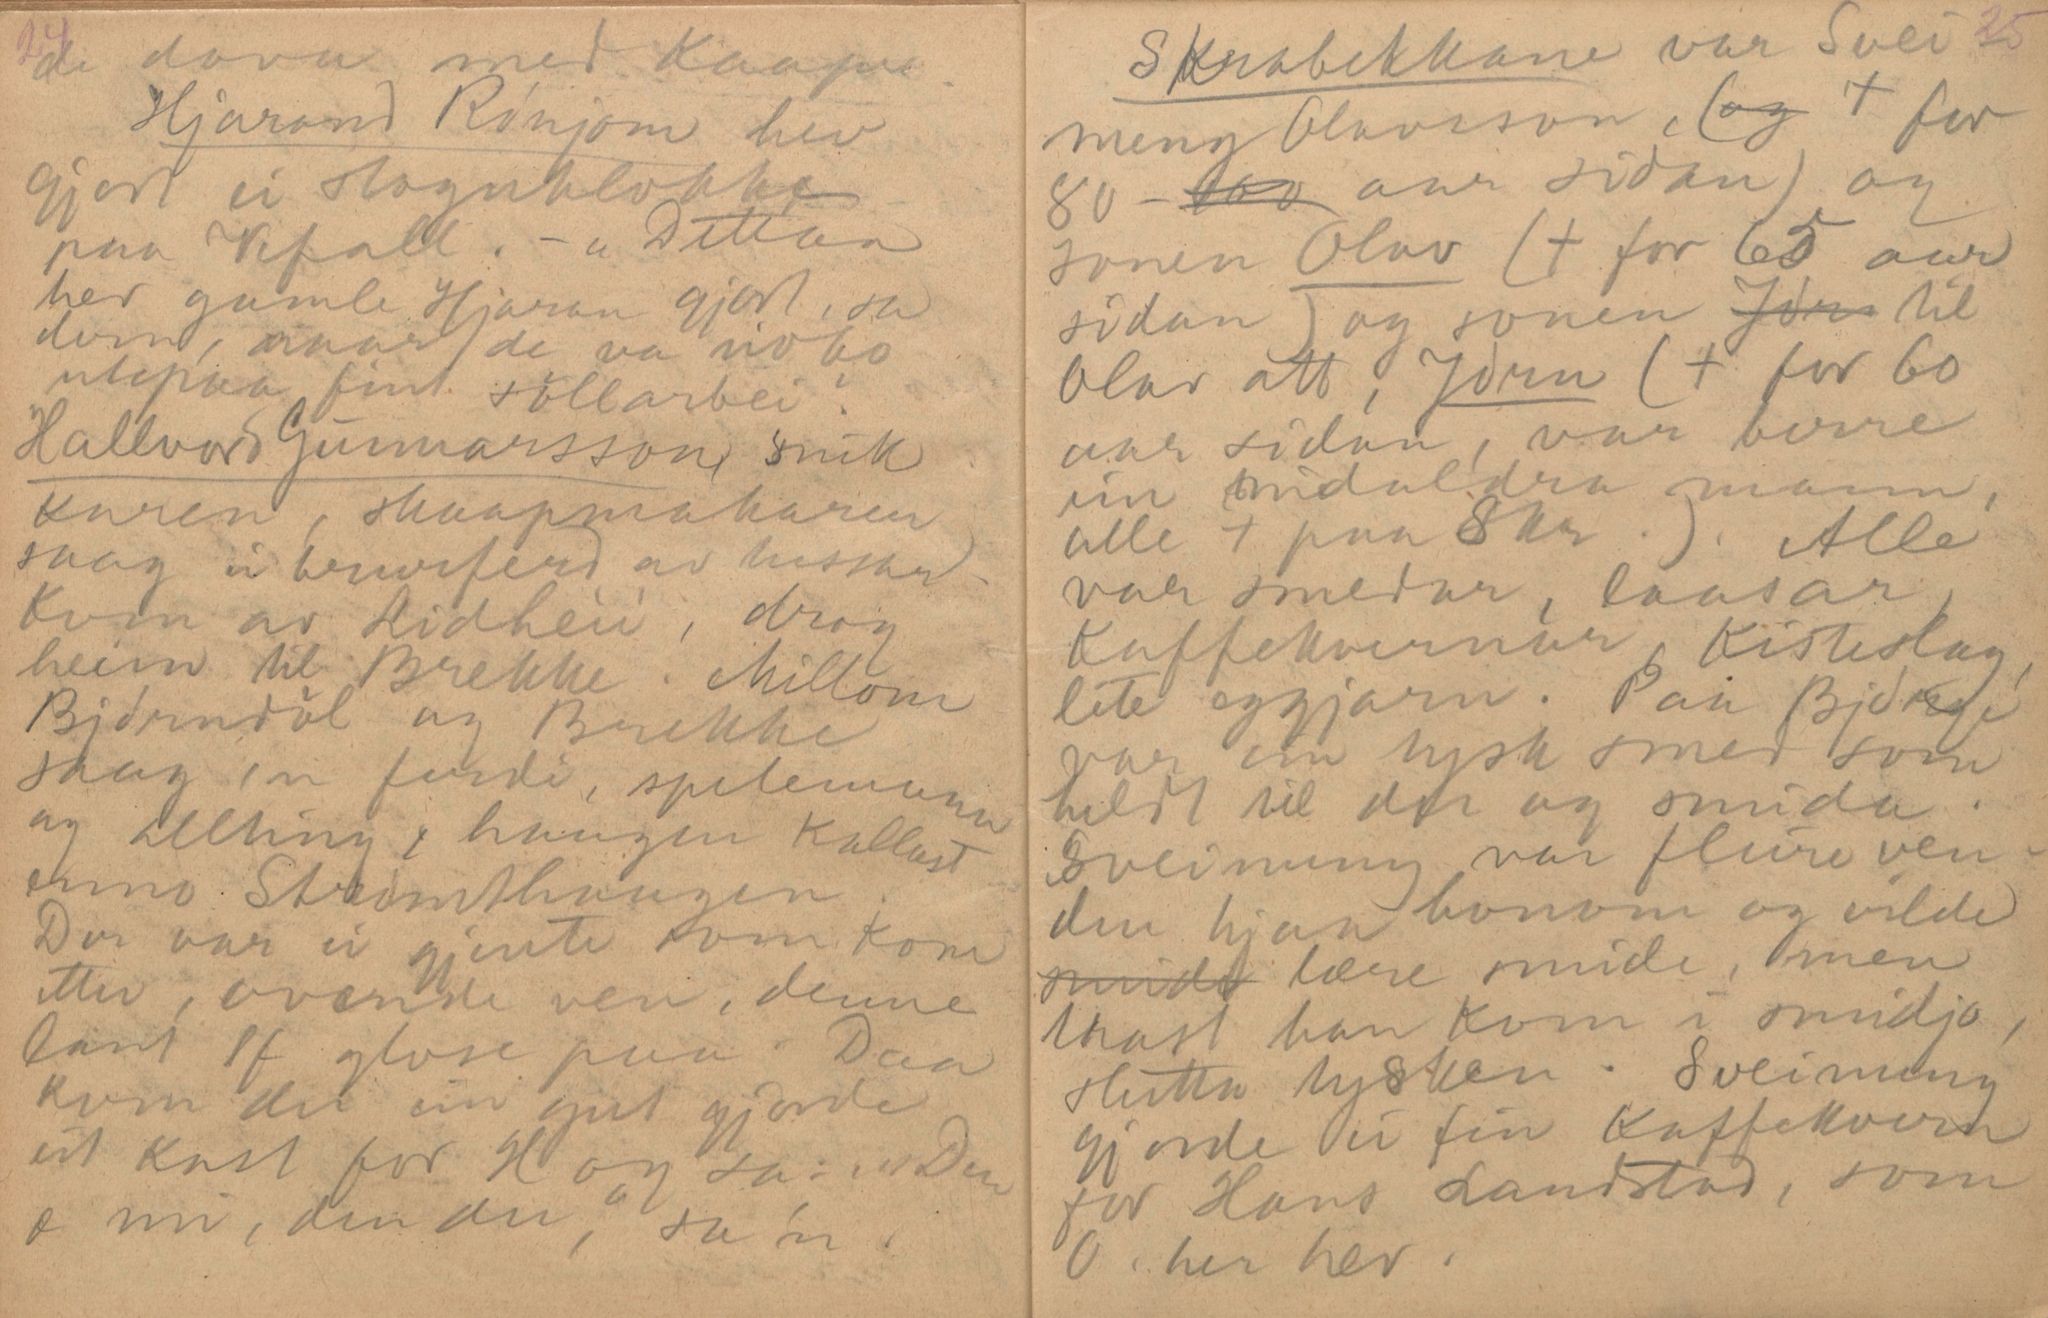 24
de dova med Kaapu.
Hjarand Rónjom hev
gjort ei slaguklokke
paa Vefall. – „Dettan
hev gamle Hjaran gjort, sa
dom, naar de va nóko
utepaa fint söllarbei".
Hallvord Gunnarsson, snik
karen, skaapmakaren
saag ei brurferd av hussar
kom av Lidheii, drog
heim til Brekke. Millom
Björndöl og Brekke
saag 'n ferdi, spelemann
og allting, haugen kallast
enno Strómthaugen.
Der var ei gjente som kom
etter, ovende ven, denne
lant H glose paa. Daa
kom der ein gut gjorde
eit kast for H og sa: „Den
e mi, den der," sa 'n.
25
Skrabekkane var Svei
nung Olavsson, (og † for
80 – 100 aar sidan) og
sonen Olav († for 65 aar
sidan) og sonen Jórn til
Olav att, Jórn († for 60
aar sidan, var berre
ein midaldra mann,
alle † paa Skr.). Alle
var smedar, laasar,
Kaffekvernar, Kisteslag,
lete eggjarn. Paa Bjórge
var ein tysk smed som
heldt til der og smida.
Sveinung var fleire ven-
der hjaa honom og vilde
smida lære smide, men
trast han kom i smidjo,
slutta tysken. Sveinung
gjorde ei fin Kaffekvern
for Hans Landstad, som
O. her hev.